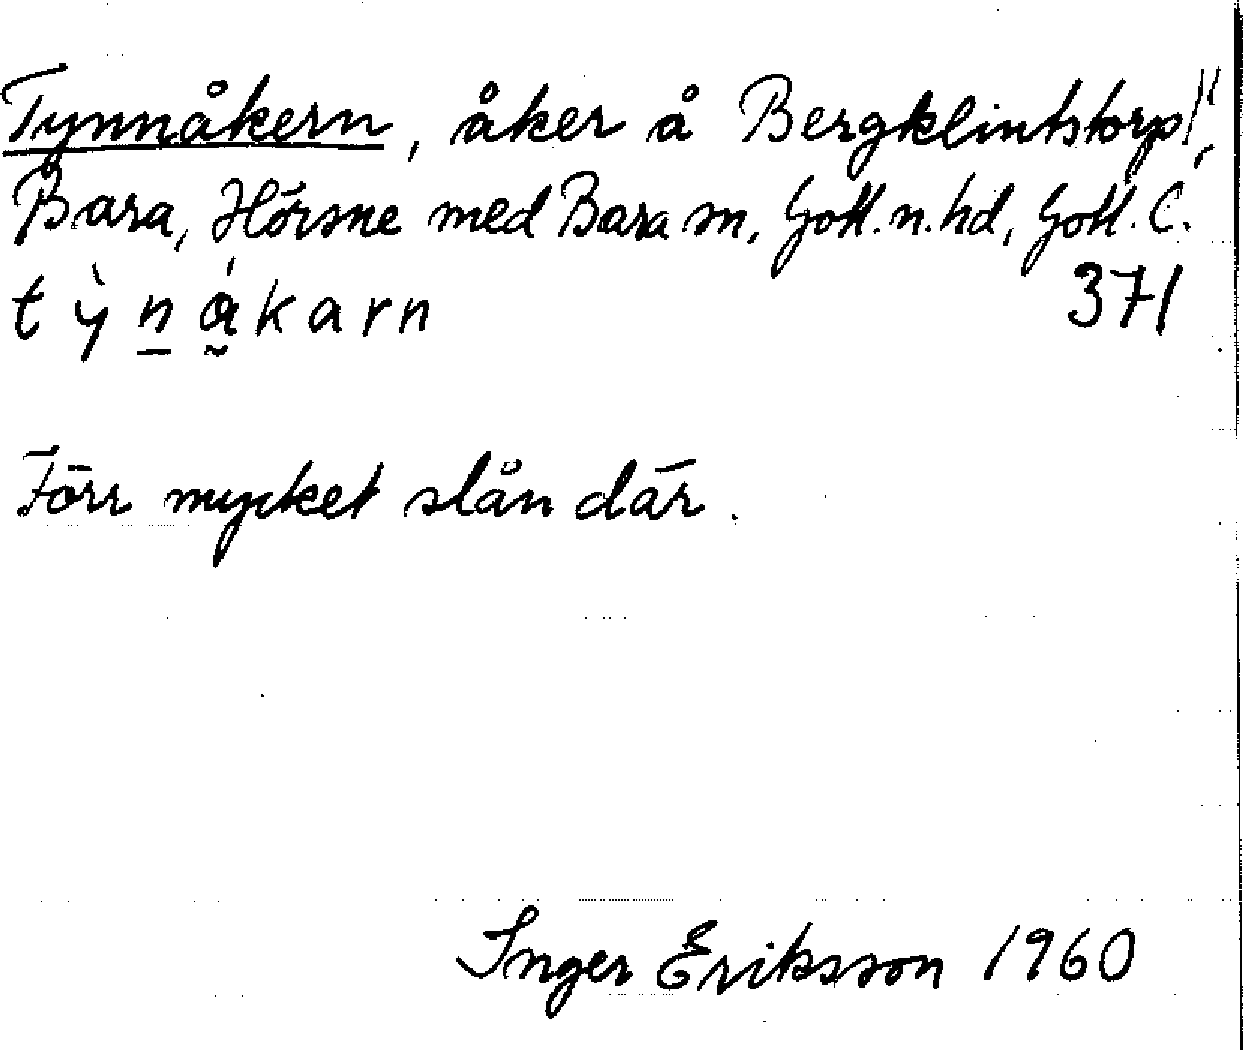 Tynnåkern, åker å Bergklintstorp 1:1,
Bara, Hörsne med Bara sn, Gotl. n. hd, Gotl. C.
t ỳ n̲ á̰ k a r n 371
Förr mycket slån där.
Inger Eriksson 1960